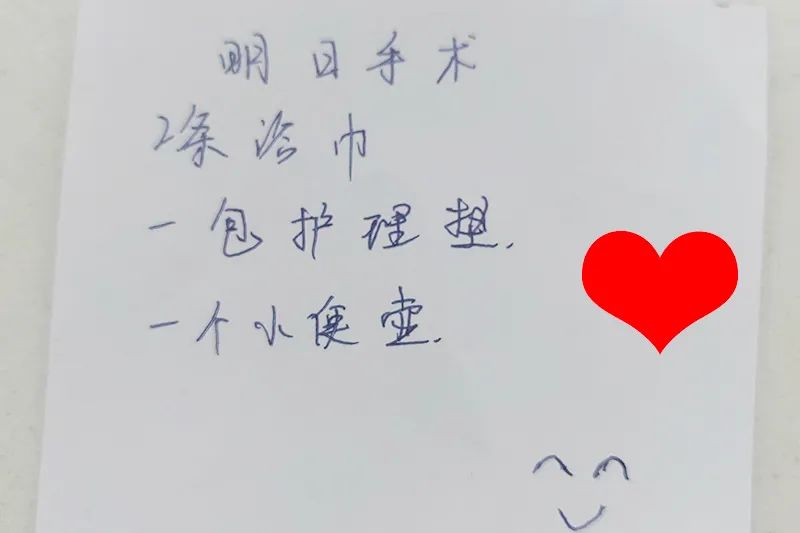 明日手术
2条浴巾
一包护理垫.
一个小便壶.